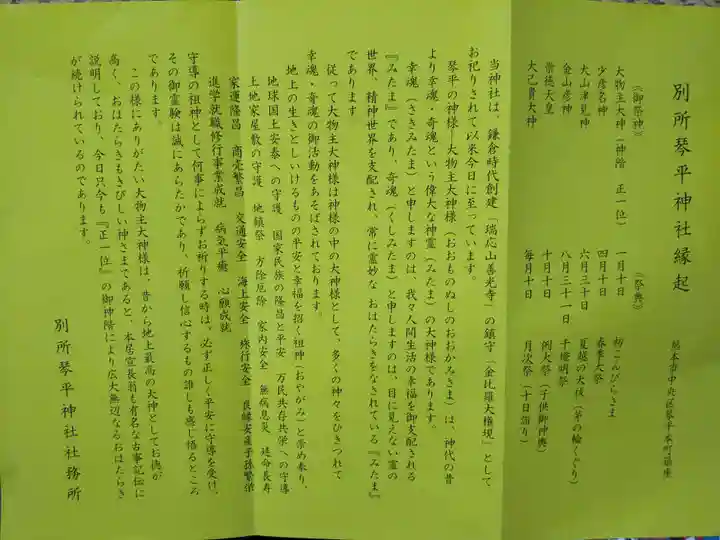 別所琴平神社縁起
熊本市中央区琴平本町鎮座
《御祭神》
《祭典》
大物主大神（神階　正一位）
一月十日　初こんぴらさま
少彦名神
四月十日　春季大祭
大山津見神
六月三十日　夏越の大祓（茅の輪くぐり）
金山彦神
八月三十一日　千燈明祭
崇徳天皇
十月十日　例大祭（子供御神輿）
大己貴大神
毎月十日　月次祭（十日詣り）
当神社は、鎌倉時代創建「瑞応山善光寺」の鎮守「金比羅大権現」として
お祀りされて以来今日に至っています。
琴平の神様―大物主大神様（おおものぬしのおおかみさま）は、神代の昔
より幸魂・奇魂という偉大な神霊（みたま）の大神様であります。
幸魂（さきみたま）と申しますのは、我々人間生活の幸福を御支配される
『みたま』であり、奇魂（くしみたま）と申しますのは、目に見えない霊の
世界、精神世界を支配され、常に霊妙な おはたらきをなされている『みたま』
であります
従って大物主大神様は神様の中の大神様として、多くの神々をひきつれて
幸魂・奇魂の御活動をあそばされております。
地上の生きとしいけるものの平安と幸福を招く祖神（おやがみ）と崇め奉り、
地球国土安泰への守護　国家民族の隆昌と平安　万民共存共栄への守導
土地家屋敷の守護　地鎮祭　方除厄除　家内安全　無病息災　延命長寿
家運隆昌　商売繁昌　交通安全　海上安全　旅行安全　良縁安産子孫繁栄
進学就職修行事業成就　病気平癒　心願成就
守導の祖神として何事によらずお祈りする時は、必ず正しく平安に守導を受け、
その御霊験は誠にあらたかであり、祈願し信心するもの誰しも感じ悟るところ
であります。
この様にありがたい大物主大神様は、昔から地上最高の大神としてお徳が
高く、おはたらきもきびしい神さまであると、本居宣長翁も有名な古事記伝に
説明しており、今日只今も『正一位』の御神階により広大無辺なるおはたらき
が続けられているのであります。
別所琴平神社社務所